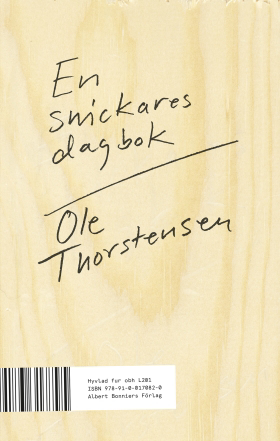 En
snickares
dagbok
Ole
Thorstensen
Hyvlad fur obh L201
ISBN 978-91-0-017082-0
Albert Bonniers Förlag